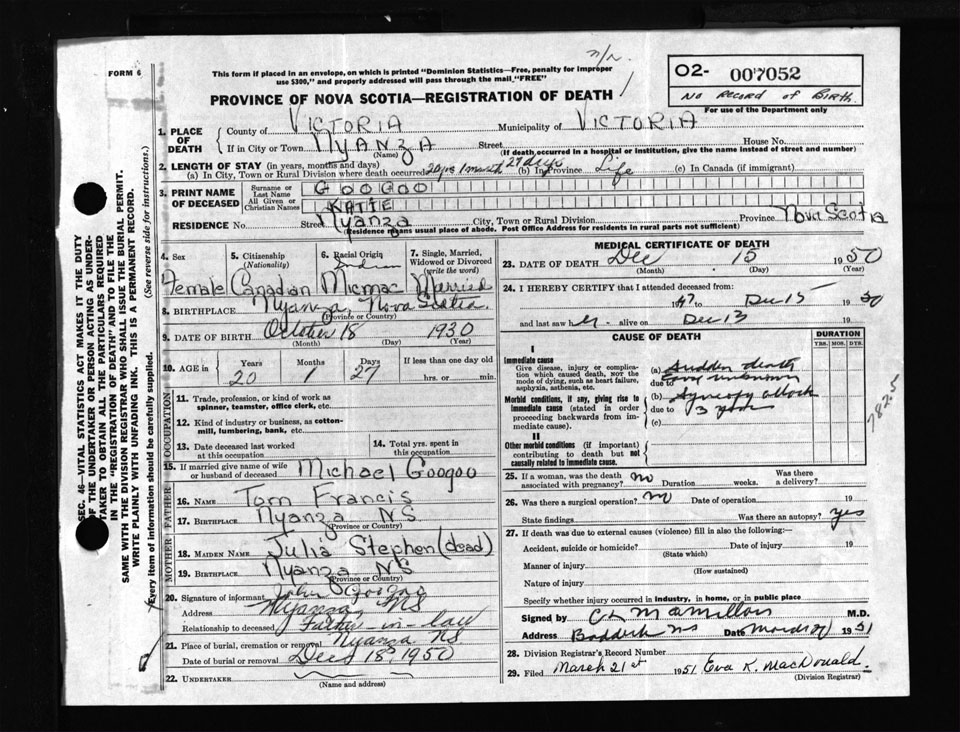 FORM 6
This form if placed in an envelope, on which is printed "Dominion Statistics—Free, penalty for improper
use $300," and properly addressed will pass through the mail "FREE"
02- 007052
No Record of Birth.
For use of the Department only
PROVINCE OF NOVA SCOTIA—REGISTRATION OF DEATH
1. PLACE OF DEATH
County of Victoria Municipality of Victoria
If in City or Town Nyanza Street House No.
(Name) (If death occurred in a hospital or institution, give the name instead of street and number)
2. LENGTH OF STAY (in years, months and days)
(a) In City, Town or Rural Division where death occurred 20 yrs 1 month 27 days (b) In Province Life (c) In Canada (if immigrant)
3. PRINT NAME OF DECEASED
Surname or Last Name GOOGOO
All Given or Christian Names KATIE
RESIDENCE No. Street Nyanza City, Town or Rural Division Province Nova Scotia
(Residence means usual place of abode. Post Office Address for residents in rural parts not sufficient)
4. Sex Female
5. Citizenship (Nationality) Canadian
6. Racial Origin Indian Micmac
7. Single, Married, Widowed or Divorced (write the word) Married
8. BIRTHPLACE Nyanza, Nova Scotia.
(Province or Country)
9. DATE OF BIRTH October 18 1930
(Month) (Day) (Year)
10. AGE in Years 20 Months 1 Days 27 If less than one day old
hrs. or min.
OCCUPATION
11. Trade, profession, or kind of work as
spinner, teamster, office clerk, etc.
12. Kind of industry or business, as cotton-
mill, lumbering, bank, etc.
13. Date deceased last worked
at this occupation
14. Total yrs. spent in
this occupation
15. If married give name of wife
or husband of deceased Michael Googoo
FATHER
16. NAME Tom Francis
17. BIRTHPLACE Nyanza NS
(Province or Country)
MOTHER
18. MAIDEN NAME Julia Stephen (dead)
19. BIRTHPLACE Nyanza NS
(Province or Country)
20. Signature of informant John Googoo
Address Nyanza NS
Relationship to deceased Father-in-law
21. Place of burial, cremation or removal Nyanza NS
Date of burial or removal Dec 18, 1950
22. UNDERTAKER
(Name and address)
MEDICAL CERTIFICATE OF DEATH
23. DATE OF DEATH Dec 15 1950
(Month) (Day) (Year)
24. I HEREBY CERTIFY that I attended deceased from:
1947 to Dec 15 1950
and last saw her alive on Dec 13 19
CAUSE OF DEATH
DURATION
YRS. MOS. DYS.
I
Immediate cause
Give disease, injury or complica-
tion which caused death, NOT the
mode of dying, such as heart failure,
asphyxia, asthenia, etc.
(a) Sudden death
due to
Morbid conditions, if any, giving rise to
immediate cause (stated in order
proceeding backwards from im-
mediate cause).
(b)
due to 3 years
(c)
7825
II
Other morbid conditions (if important)
contributing to death but not
causally related to immediate cause.
25. If a woman, was the death
associated with pregnancy? no Duration weeks. Was there
a delivery?
26. Was there a surgical operation? no Date of operation 19
State findings Was there an autopsy? yes
27. If death was due to external causes (violence) fill in also the following:—
Accident, suicide or homicide? Date of injury 19
(State which)
Manner of injury
(How sustained)
Nature of injury
Specify whether injury occurred in industry, in home, or in public place
Signed by M.D.
Address Baddeck NS Date 1951
28. Division Registrar's Record Number
29. Filed March 21st 1951 Eva K. MacDonald.
(Division Registrar)
SEC. 46—VITAL STATISTICS ACT MAKES IT THE DUTY
OF THE UNDERTAKER OR PERSON ACTING AS UNDER-
TAKER TO OBTAIN ALL THE PARTICULARS REQUIRED
IN THE "REGISTRATION OF DEATH" AND TO FILE THE
SAME WITH THE DIVISION REGISTRAR WHO SHALL ISSUE THE BURIAL PERMIT.
WRITE PLAINLY WITH UNFADING INK. THIS IS A PERMANENT RECORD.
Every item of information should be carefully supplied. (See reverse side for instructions.)